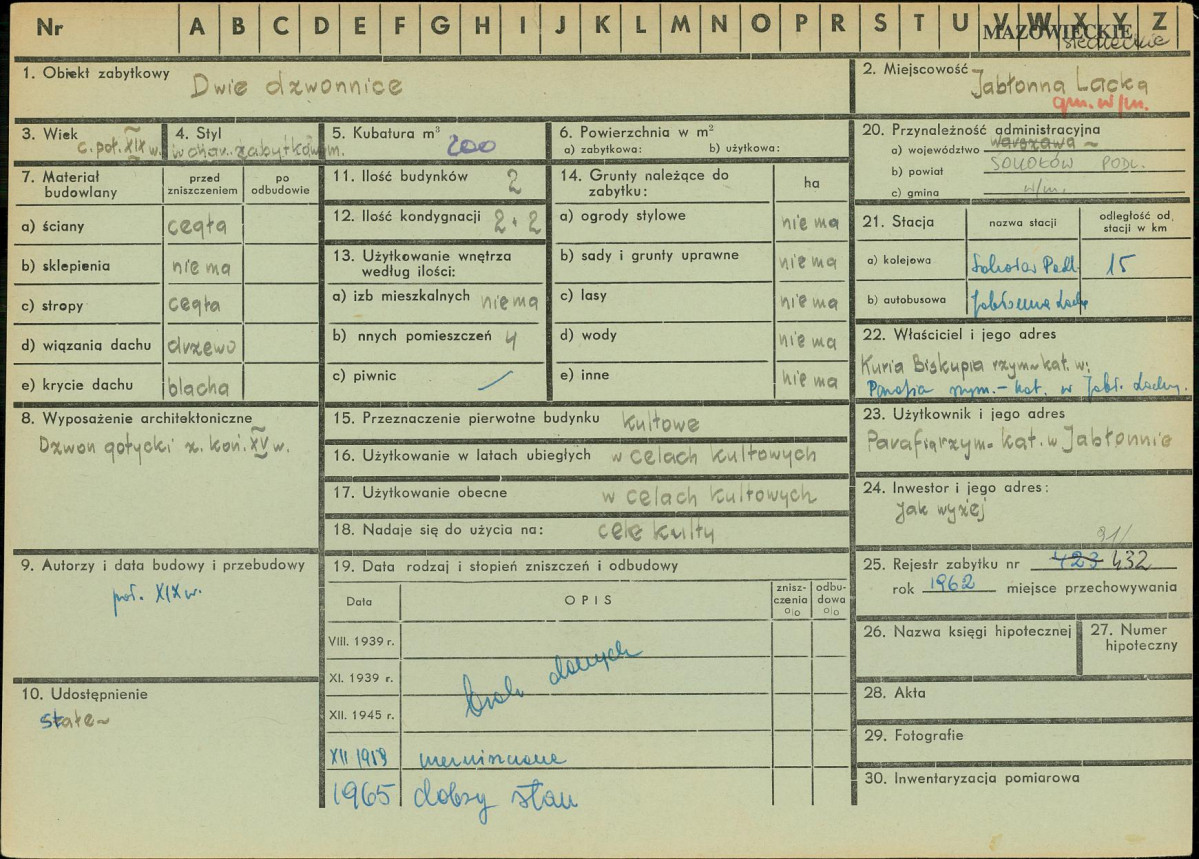 Nr A B C D E F G H I J K L M N O P R S T U V W X Y Z
MAZOWIECKIE
siedleckie
1. Obiekt zabytkowy Dwie dzwonnice
2. Miejscowość Jabłonna Lacka
gm. w/m.
3. Wiek c. poł. XIX w.
4. Styl w char. zabytkowym.
5. Kubatura m³ 200
6. Powierzchnia w m²
a) zabytkowa: b) użytkowa:
20. Przynależność administracyjna
a) województwo warszawa ~
b) powiat SOKOŁÓW PODL.
c) gmina w/m.
7. Materiał budowlany
przed zniszczeniem
po odbudowie
a) ściany cegła
b) sklepienia nie ma
c) stropy cegła
d) wiązania dachu drzewo
e) krycie dachu blacha
11. Ilość budynków 2
12. Ilość kondygnacji 2 + 2
13. Użytkowanie wnętrza
według ilości:
a) izb mieszkalnych nie ma
b) nnych pomieszczeń 4
c) piwnic /
14. Grunty należące do
zabytku:
ha
a) ogrody stylowe nie ma
b) sady i grunty uprawne nie ma
c) lasy nie ma
d) wody nie ma
e) inne nie ma
21. Stacja
nazwa stacji
odległość od
stacji w km
a) kolejowa Sokołów Podl. 15
b) autobusowa Jabłonna Lacka
22. Właściciel i jego adres
Kuria Biskupia rzym-kat. w:
Parafia rzym.-kat. w Jabł. Lackiej.
8. Wyposażenie architektoniczne
Dzwon gotycki z. koń. XV w.
15. Przeznaczenie pierwotne budynku kultowe
16. Użytkowanie w latach ubiegłych w celach kultowych
17. Użytkowanie obecne w celach kultowych
18. Nadaje się do użycia na: cele kultu
23. Użytkownik i jego adres
Parafia rzym-kat. w Jabłonnie
24. Inwestor i jego adres:
jak wyżej
91/
25. Rejestr zabytku nr 423 432
rok 1962 miejsce przechowywania
9. Autorzy i data budowy i przebudowy
poł. XIX w.
19. Data rodzaj i stopień zniszczeń i odbudowy
Data
OPIS
znisz-
czenia
o|o
odbu-
dowa
o|o
VIII. 1939 r.
XI. 1939 r.
XII. 1945 r.
brak danych
XII 1958
1965 dobry stan
10. Udostępnienie
stałe ~
26. Nazwa księgi hipotecznej
27. Numer
hipoteczny
28. Akta
29. Fotografie
30. Inwentaryzacja pomiarowa